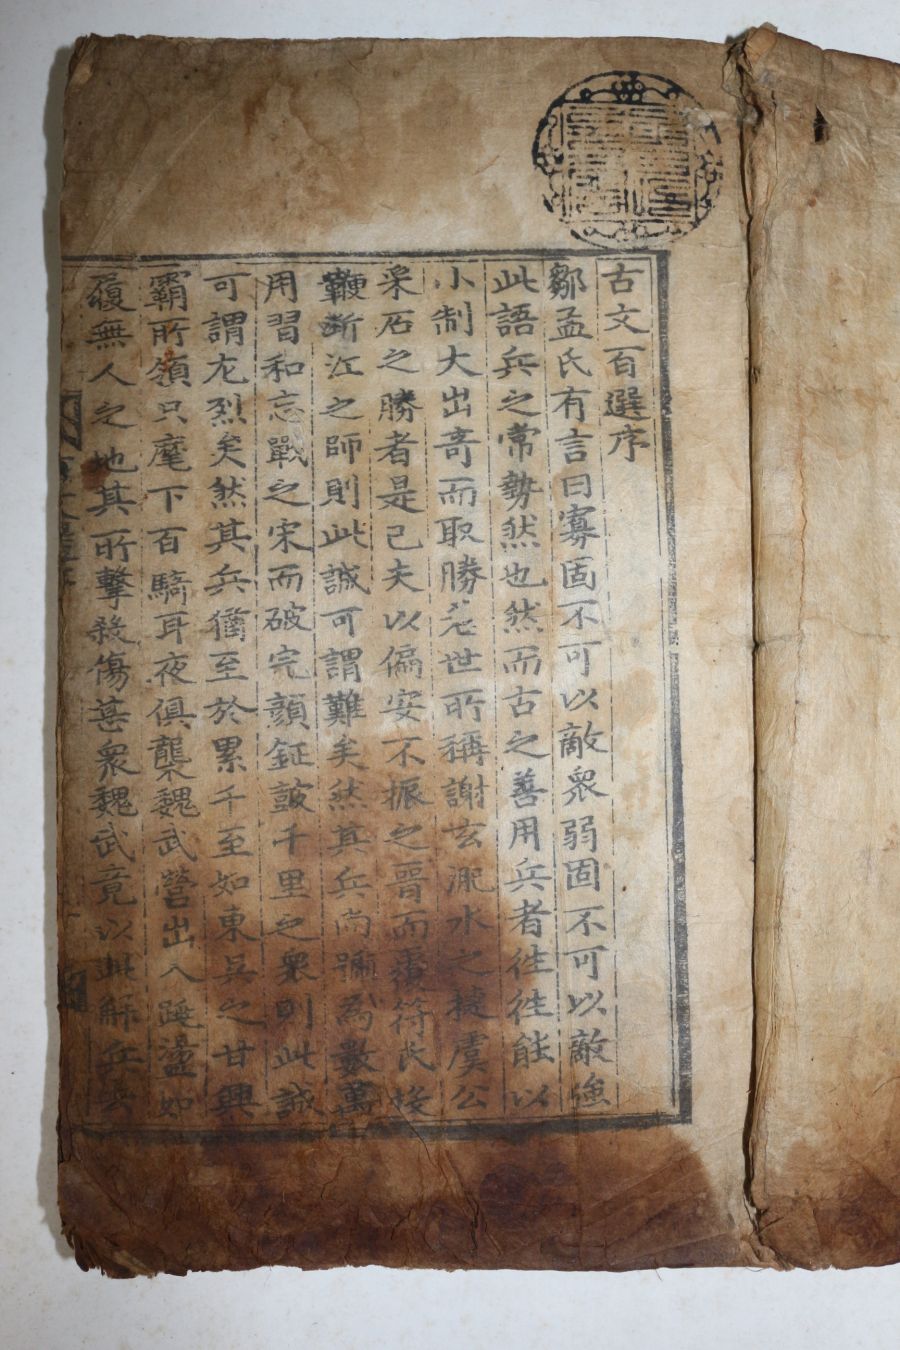 古文百選序
鄒孟氏有言曰寡固不可以敵衆弱固不可以敵強
此語兵之常勢然也然而古之善用兵者徃徃能以
小制大出奇而取勝若世所稱謝玄淝水之捷虞公
采石之勝者是已夫以偏安不振之晋而覆符氏投
鞭斷江之師則此誠可謂難矣然其兵尚號爲數萬
用習和忘戰之宋而破完顔鉦皷千里之衆則此誠
可謂尤烈矣然其兵至於累千至如東吳之甘興
霸所領只麾下百騎耳夜俱襲魏武營出入盪如
履無人之地其所擊殺傷甚衆魏武竟以此解兵去